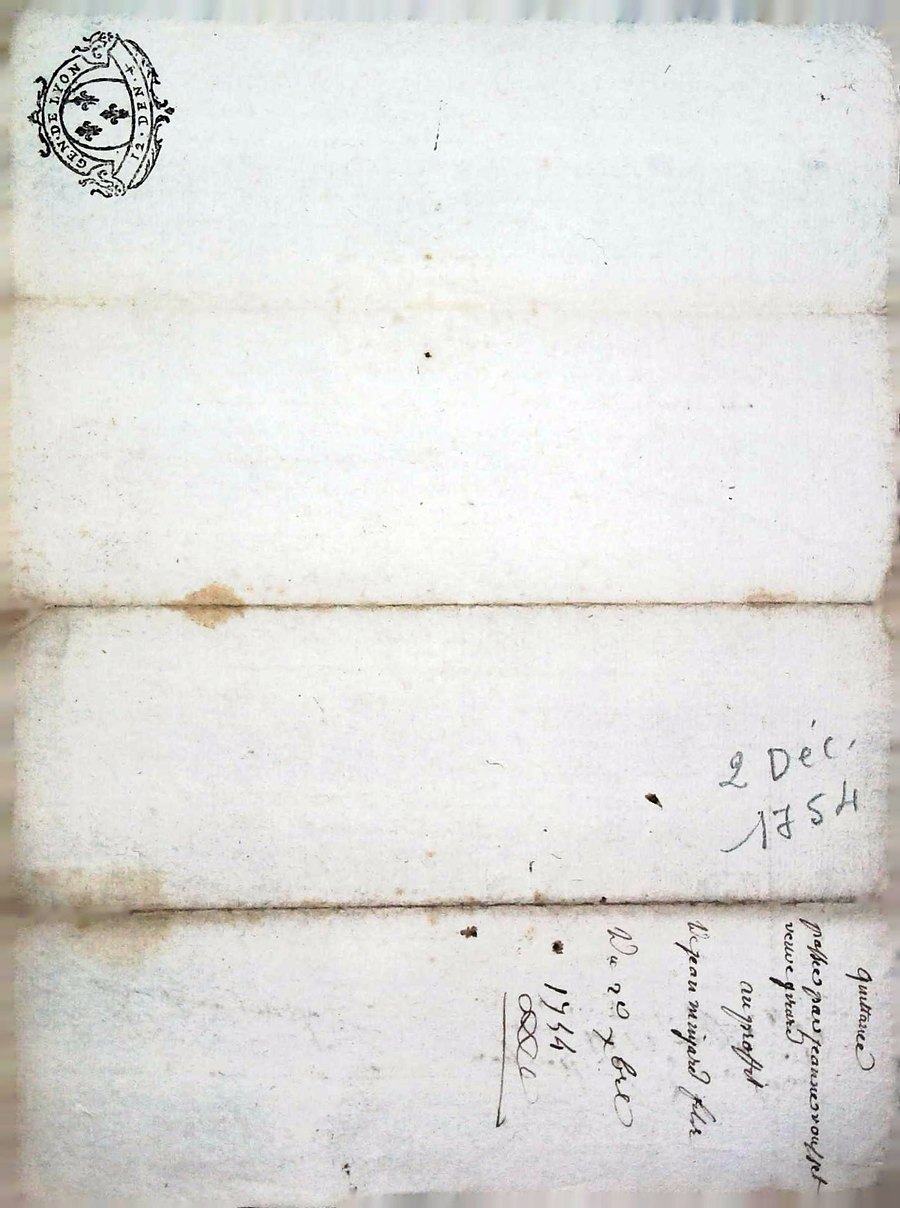 GEN. DE LYON
12. DEN. +
2 Déc.
1754
quittance
passee par jeanne rousset
veuve girard.
au proffit
De jean mijard fils
Du 2e xbre
1754